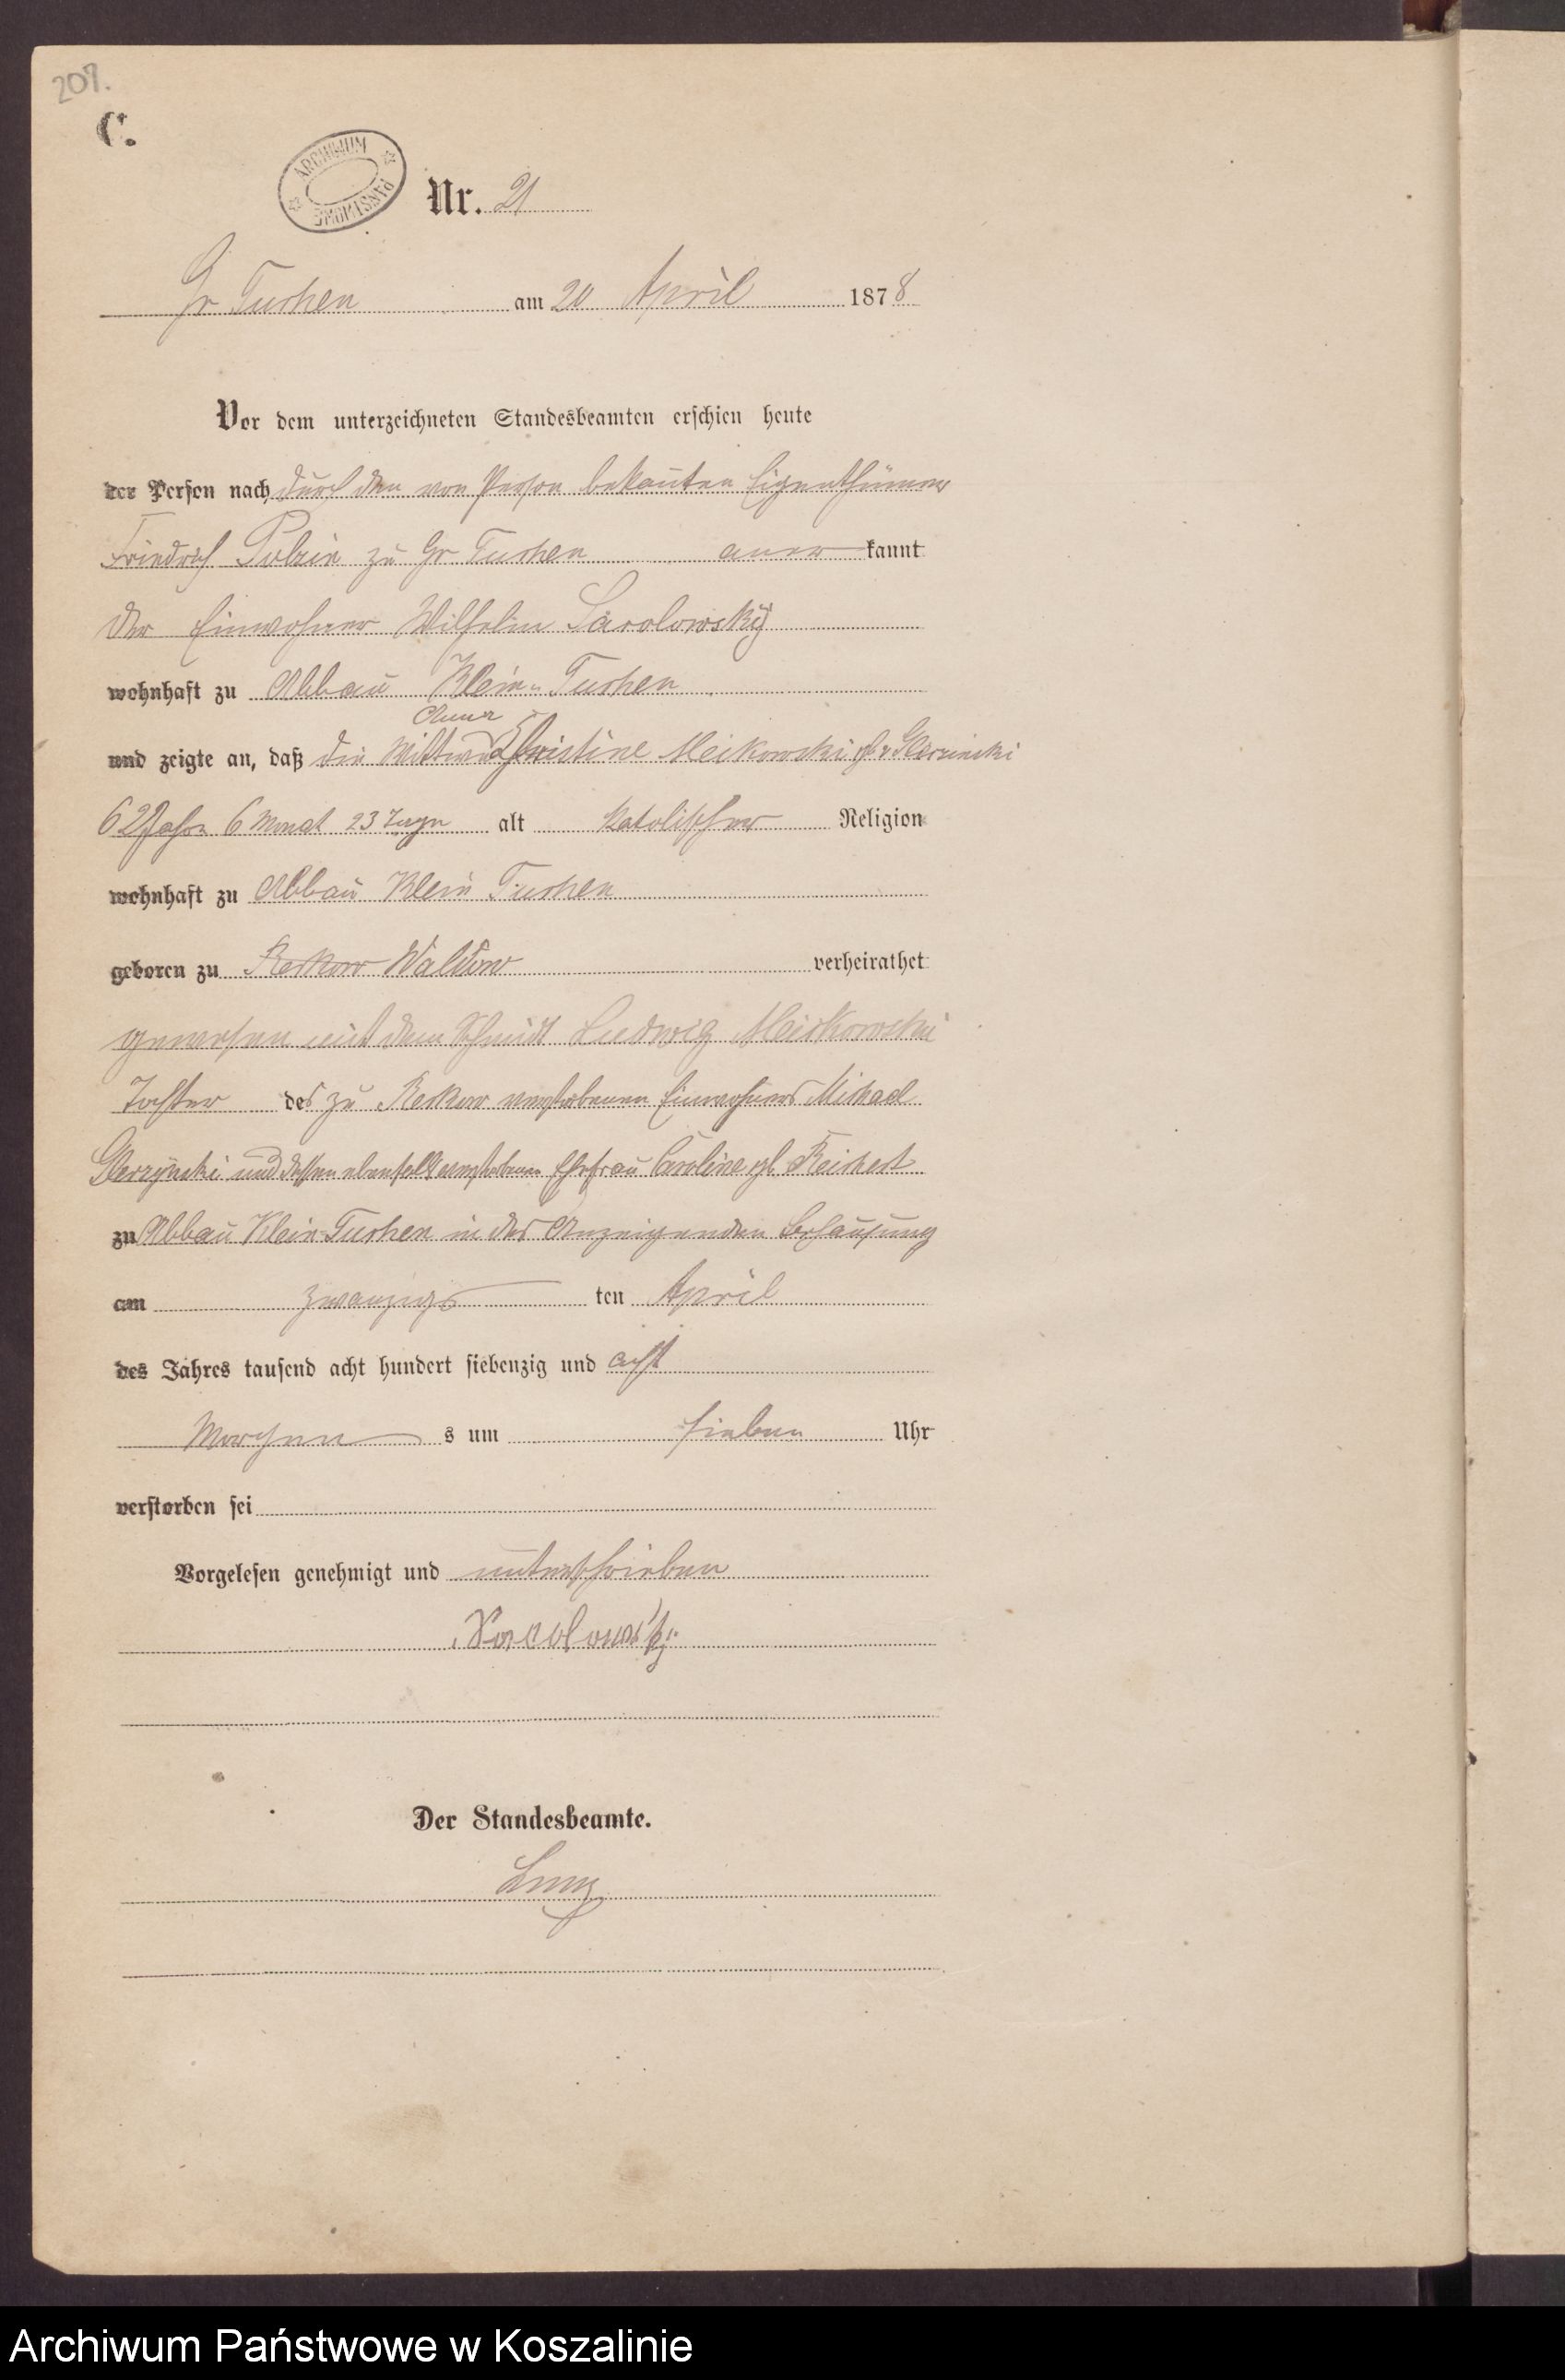 207.
C.
ARCHIWUM PAŃSTWOWE
Nr. 21
Gr Tuchen am 20 April 1878
Vor dem unterzeichneten Standesbeamten erschien heute
der Person nach durch den von Person bekannten Eigenthümer
Friedrich Polzin zu Gr Tuchen aner kannt
der Einwohner Wilhelm
wohnhaft zu Abbau Klein-Tuchen
und zeigte an, daß die Wittwe Christine Meikowski
62 Jahr 6 Monat 23 Tage alt katolischer Religion
wohnhaft zu Abbau Klein Tuchen
geboren zu Reckow Waldow verheirathet
gewesen mit dem Schmidt Ludwig Meikowski
Tochter des zu Reckow verstorbenen Einwohners Michael
und dessen ebenfalls verstorbenen Ehefrau Caroline gb
zu Abbau Klein-Tuchen in des Anzeigenden Behausung
am zwanzigs ten April
des Jahres tausend acht hundert siebenzig und acht
Morgen s um sieben Uhr
verstorben sei
Vorgelesen genehmigt und unterschrieben
Der Standesbeamte.
Archiwum Państwowe w Koszalinie